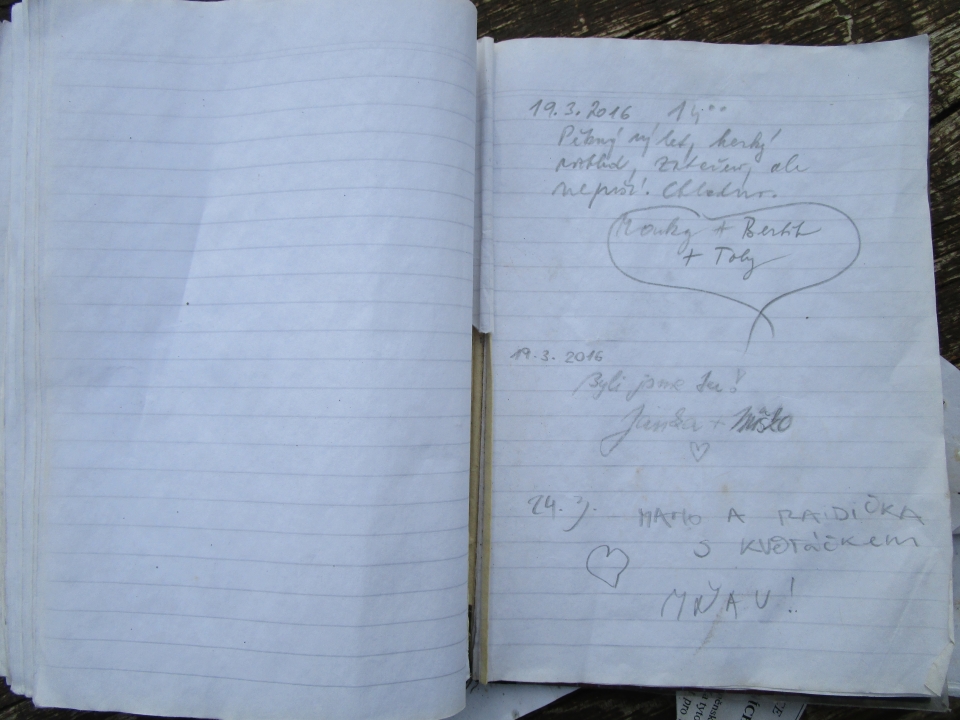 19.3.2016 14⁰⁰
Pěkný výlet, hezký
rozhled, zataženo, ale
neprší. Chladno.
+ Bertík
+ Toby
19.3.2016
Byli jsme tu!
Janička + Miško
24. 3. MAMO A RAIDIČKA
S KVĚTÁČKEM
MŇAU!